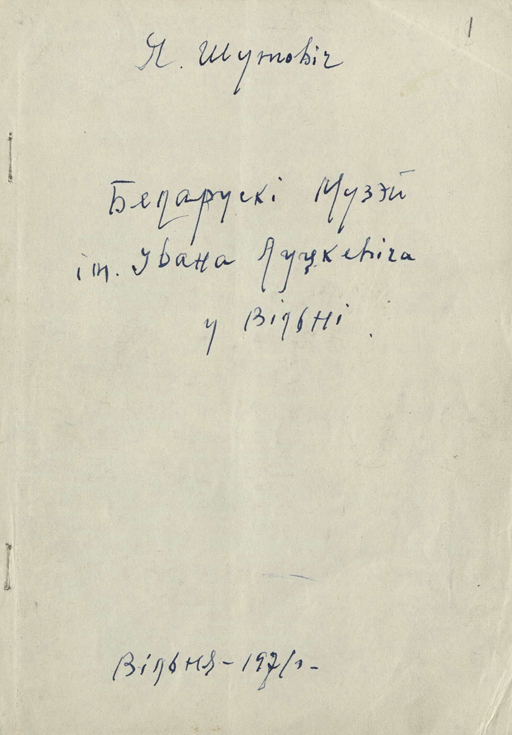 1
Я. Шутовіч
Беларускі Музэй
ім. Івана Луцкевіча
у Вільні.
Вільня – 1971 г.